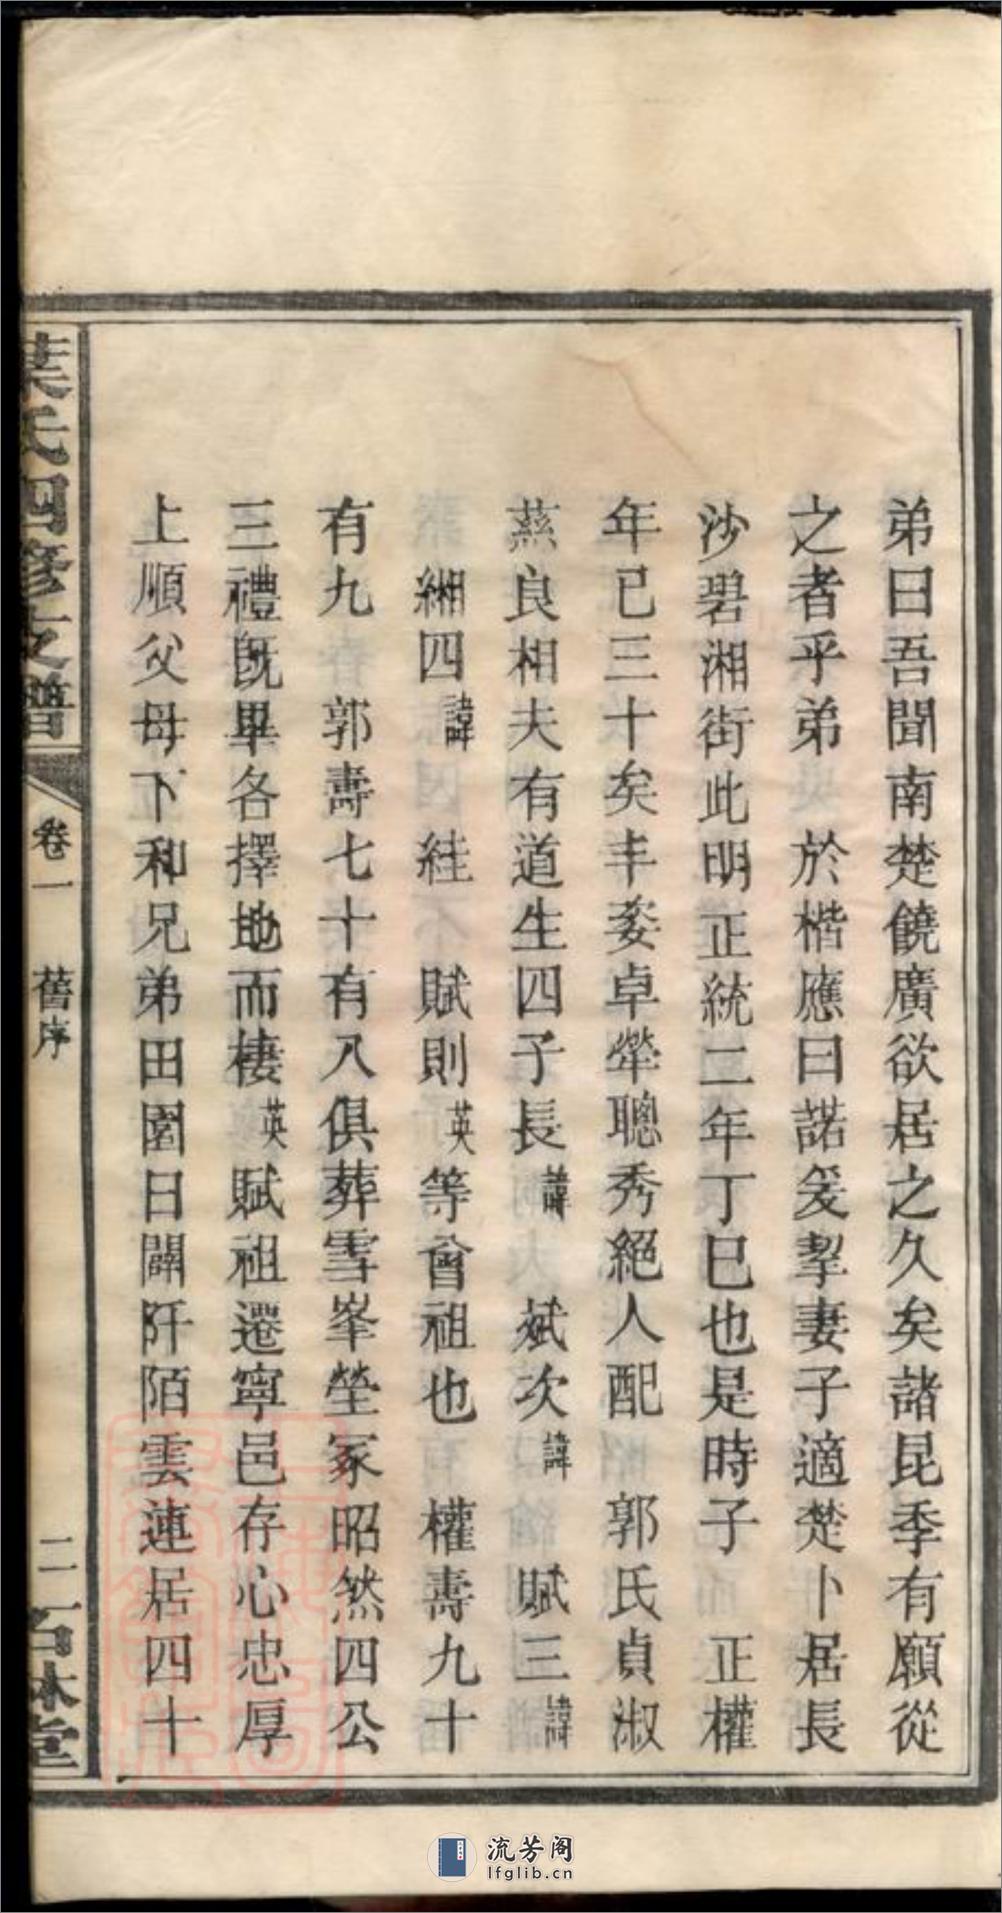 弟曰吾聞南楚饒廣欲居之久矣諸昆季有願從
之者乎弟 於楷應曰諾爰挈妻子適楚卜居長
沙碧湘街此明正統二年丁巳也是時子 正權
年已三十矣丰姿卓犖聰秀絕人配 郭氏貞淑
燕良相夫有道生四子長諱 斌次諱 賦三諱
緗四諱 絓 賦則英等會祖也 權壽九十
有九 郭壽七十有八俱葬雪峯塋冢昭然四公
三禮既畢各擇地而棲英賦祖遷寧邑存心忠厚
上順父母下和兄弟田園日闢阡陌雲連居四十
葉氏四修支譜
卷一 舊序
二 石林堂
流芳阁
lfglib.cn